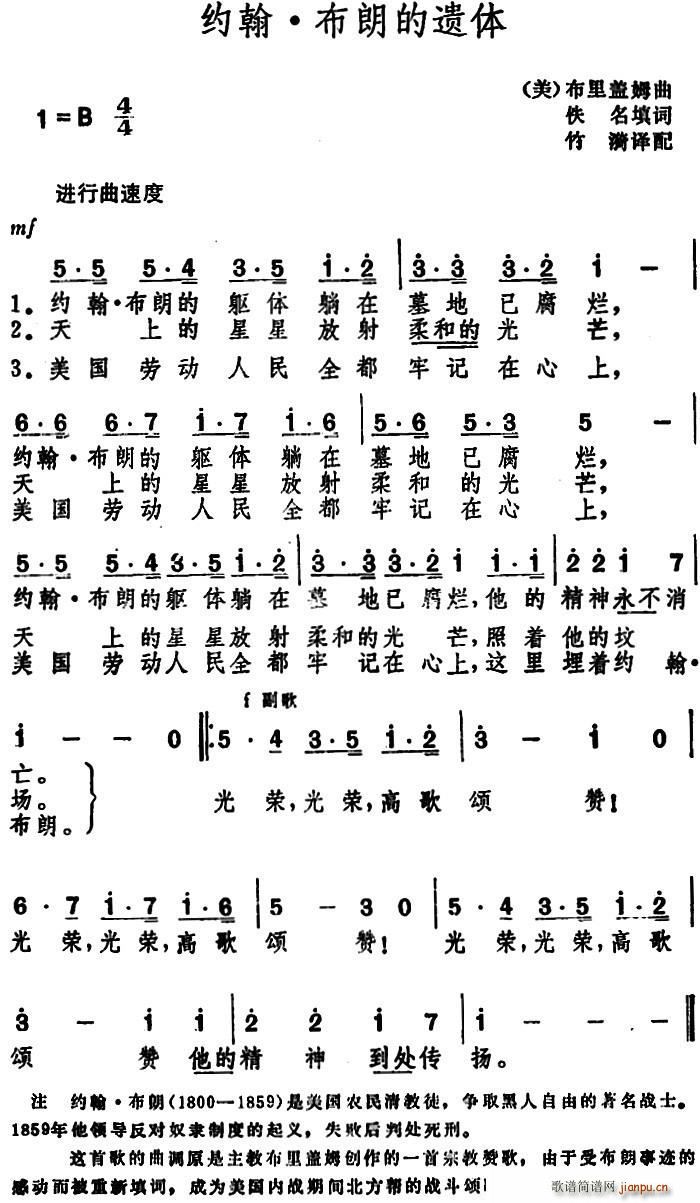 约翰·布朗的遗体
(美)布里盖姆曲
1=B 4/4
佚 名填词
竹 漪译配
进行曲速度
mf
5·5 5·4 3·5 i·2 | 3·3 3·2 i − |
1. 约翰·布朗的 躯 体 躺在 墓地 已腐 烂,
2. 天 上的 星星 放射 柔和的 光 芒,
3. 美国 劳动 人民 全都 牢记 在心 上,
6·6 6·7 i·7 i·6 | 5·6 5·3 5 − |
约翰·布朗的 躯体 躺在 墓地 已腐 烂,
天 上的 星星 放射 柔和 的光 芒,
美国 劳动 人民 全都 牢记 在心 上,
5·5 5·4 3·5 i·2 | 3·3 3·2 i i·i | 2 2 i 7 |
约翰·布朗的躯体躺在 墓 地已腐烂,他的 精神永不消
天 上的星星放射 柔和的光 芒,照着 他的坟
美国 劳动人民全都 牢 记在心上,这里 埋着约 翰·
f 副歌
i − − 0 |: 5·4 3·5 i·2 | 3 − i 0 |
亡。
场。
布朗。
光 荣,光荣,高歌 颂 赞!
6·7 i·7 i·6 | 5 − 3 0 | 5·4 3·5 i·2 |
光 荣,光荣,高歌 颂 赞! 光 荣,光荣,高歌
3 − i i i | 2 2 i 7 | i − − |
颂 赞 他的精 神 到处传 扬。
注 约翰·布朗(1800—1859)是美国农民清教徒,争取黑人自由的著名战士。
1859年他领导反对奴隶制度的起义,失败后判处死刑。
这首歌的曲调原是主教布里盖姆创作的一首宗教赞歌,由于受布朗事迹的
感动而被重新填词,成为美国内战期间北方帮的战斗颂
歌谱简谱网
jianpu.cn